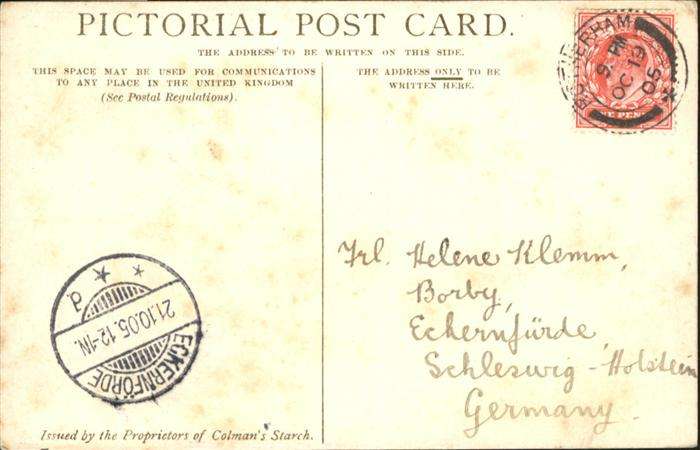 PICTORIAL POST CARD.
THE ADDRESS TO BE WRITTEN ON THIS SIDE.
THIS SPACE MAY BE USED FOR COMMUNICATIONS
TO ANY PLACE IN THE UNITED KINGDOM
(See Postal Regulations).
THE ADDRESS ONLY TO BE
WRITTEN HERE.
9 PM
OC 19
05
Frl. Helene Klemm,
Borby,
Eckernförde,
Schleswig-Holstein
Germany.
ECKERNFÖRDE
21.10.05.12-1N.
Issued by the Proprietors of Colman's Starch.